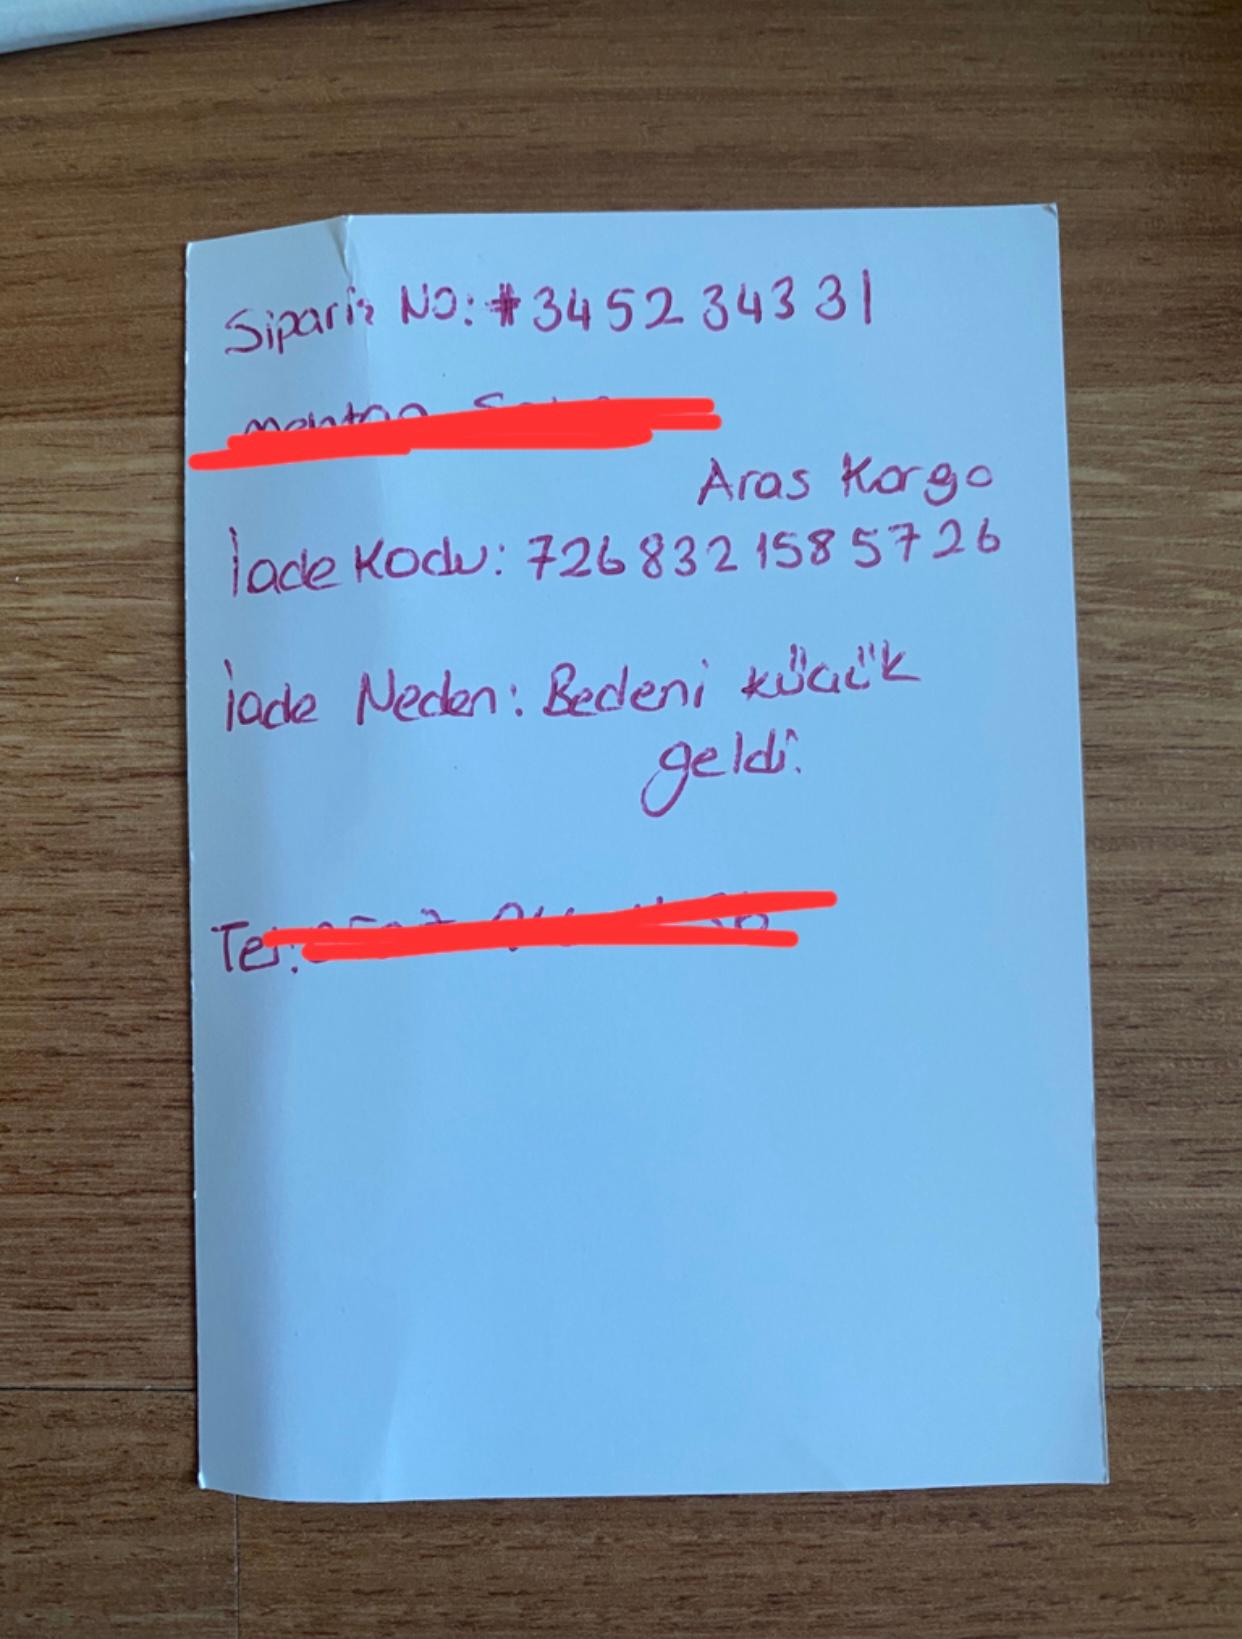 Sipariş No: #345234331
Aras Kargo
İade Kodu: 7268321585726
İade Neden: Bedeni küçük
geldi.
Tel: